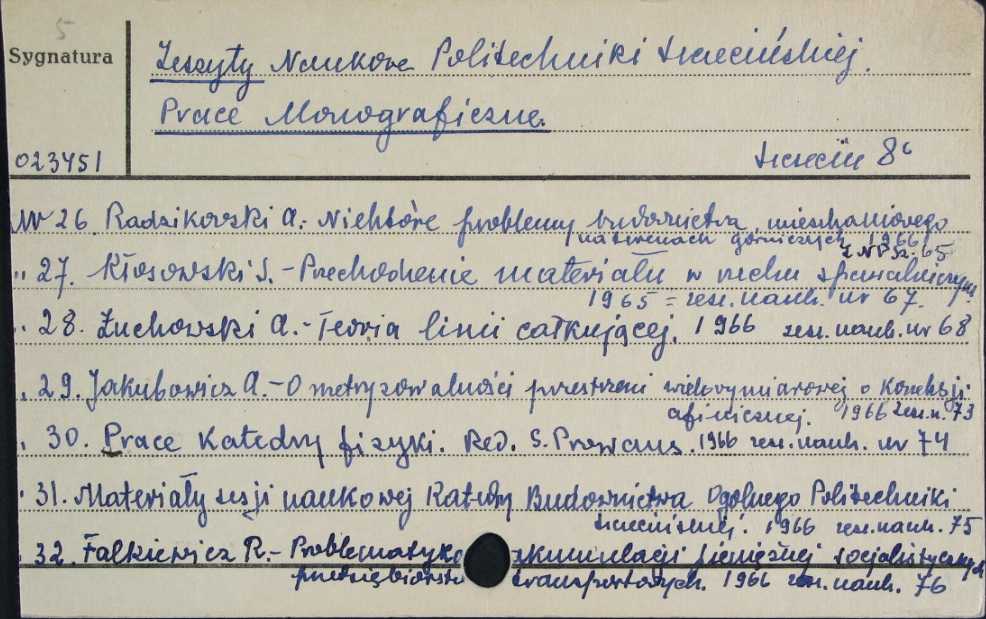 5
Sygnatura
Zeszyty Naukowe Politechniki Szczecińskiej.
Prace Monograficzne.
023451
Szczecin 8°
Nr 26 Radzikowski A.: Niektóre problemy budownictwa mieszkaniowego
na terenach górniczych 1966
Z.N.P.Sz. 65
" 27. Kłosowski S. - Przechodzenie materiału w ruchu
1965 = zesz. nauk. nr 67.
" 28. Żuchowski A. - Teoria linii całkującej. 1966 zesz. nauk. nr 68
" 29. Jakubowicz A. - O metryzowalności przestrzeni wielowymiarowej o koneksji
afinicznej. 1966 zesz. n. 73
" 30. Prace Katedry fizyki. Red. S. Prowans. 1966 zesz. nauk. nr 74
" 31. Materiały sesji naukowej Katedry Budownictwa Ogólnego Politechniki
Szczecińskiej. 1966 zesz. nauk. 75
" 32. Falkiewicz R. - Problematyka akumulacji pieniężnej socjalistycznych
przedsiębiorstw transportowych. 1966 zesz. nauk. 76